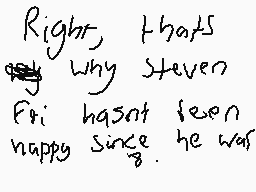 Right, thats
why Steven
Fri hasnt been
happy since he was
8.